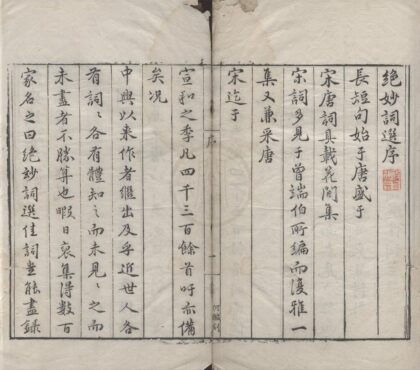 絶妙詞選序
長短句始于唐盛于
宋唐詞具載花間集
宋詞多見于曾端伯所編而復雅一
集又兼采唐
宋迄于
宣和之季凡四千三百餘首吁亦備
矣况
序
中興以來作者繼出及乎近世人各
有詞〻各有體知之而未見〻之而
未盡者不勝算也暇日裒集得數百
家名之曰絶妙詞選佳詞豈能盡錄